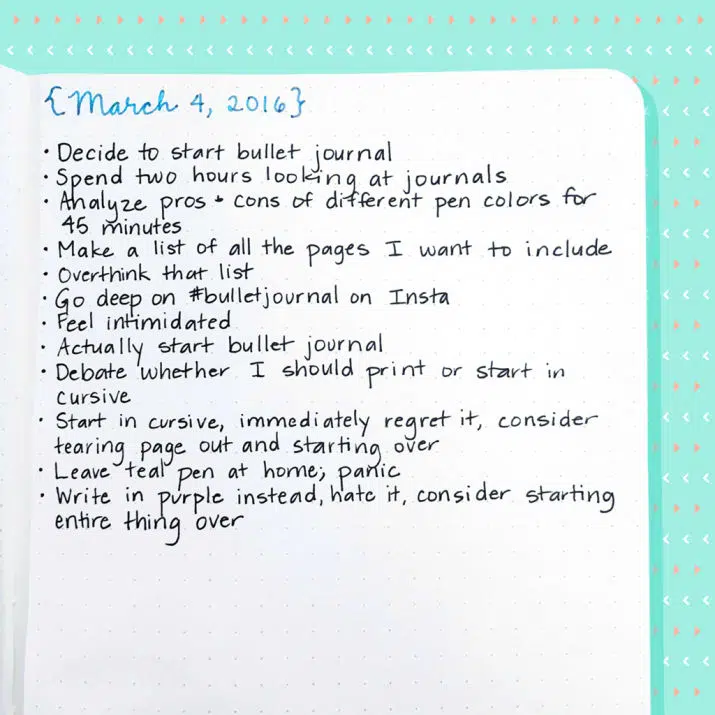 {March 4, 2016}
· Decide to start bullet journal
· Spend two hours looking at journals
· Analyze pros + cons of different pen colors for
45 minutes
· Make a list of all the pages I want to include
· Overthink that list
· Go deep on #bulletjournal on Insta
· Feel intimidated
· Actually start bullet journal
· Debate whether I should print or start in
cursive
· Start in cursive, immediately regret it, consider
tearing page out and starting over
· Leave teal pen at home; panic
· Write in purple instead, hate it, consider starting
entire thing over